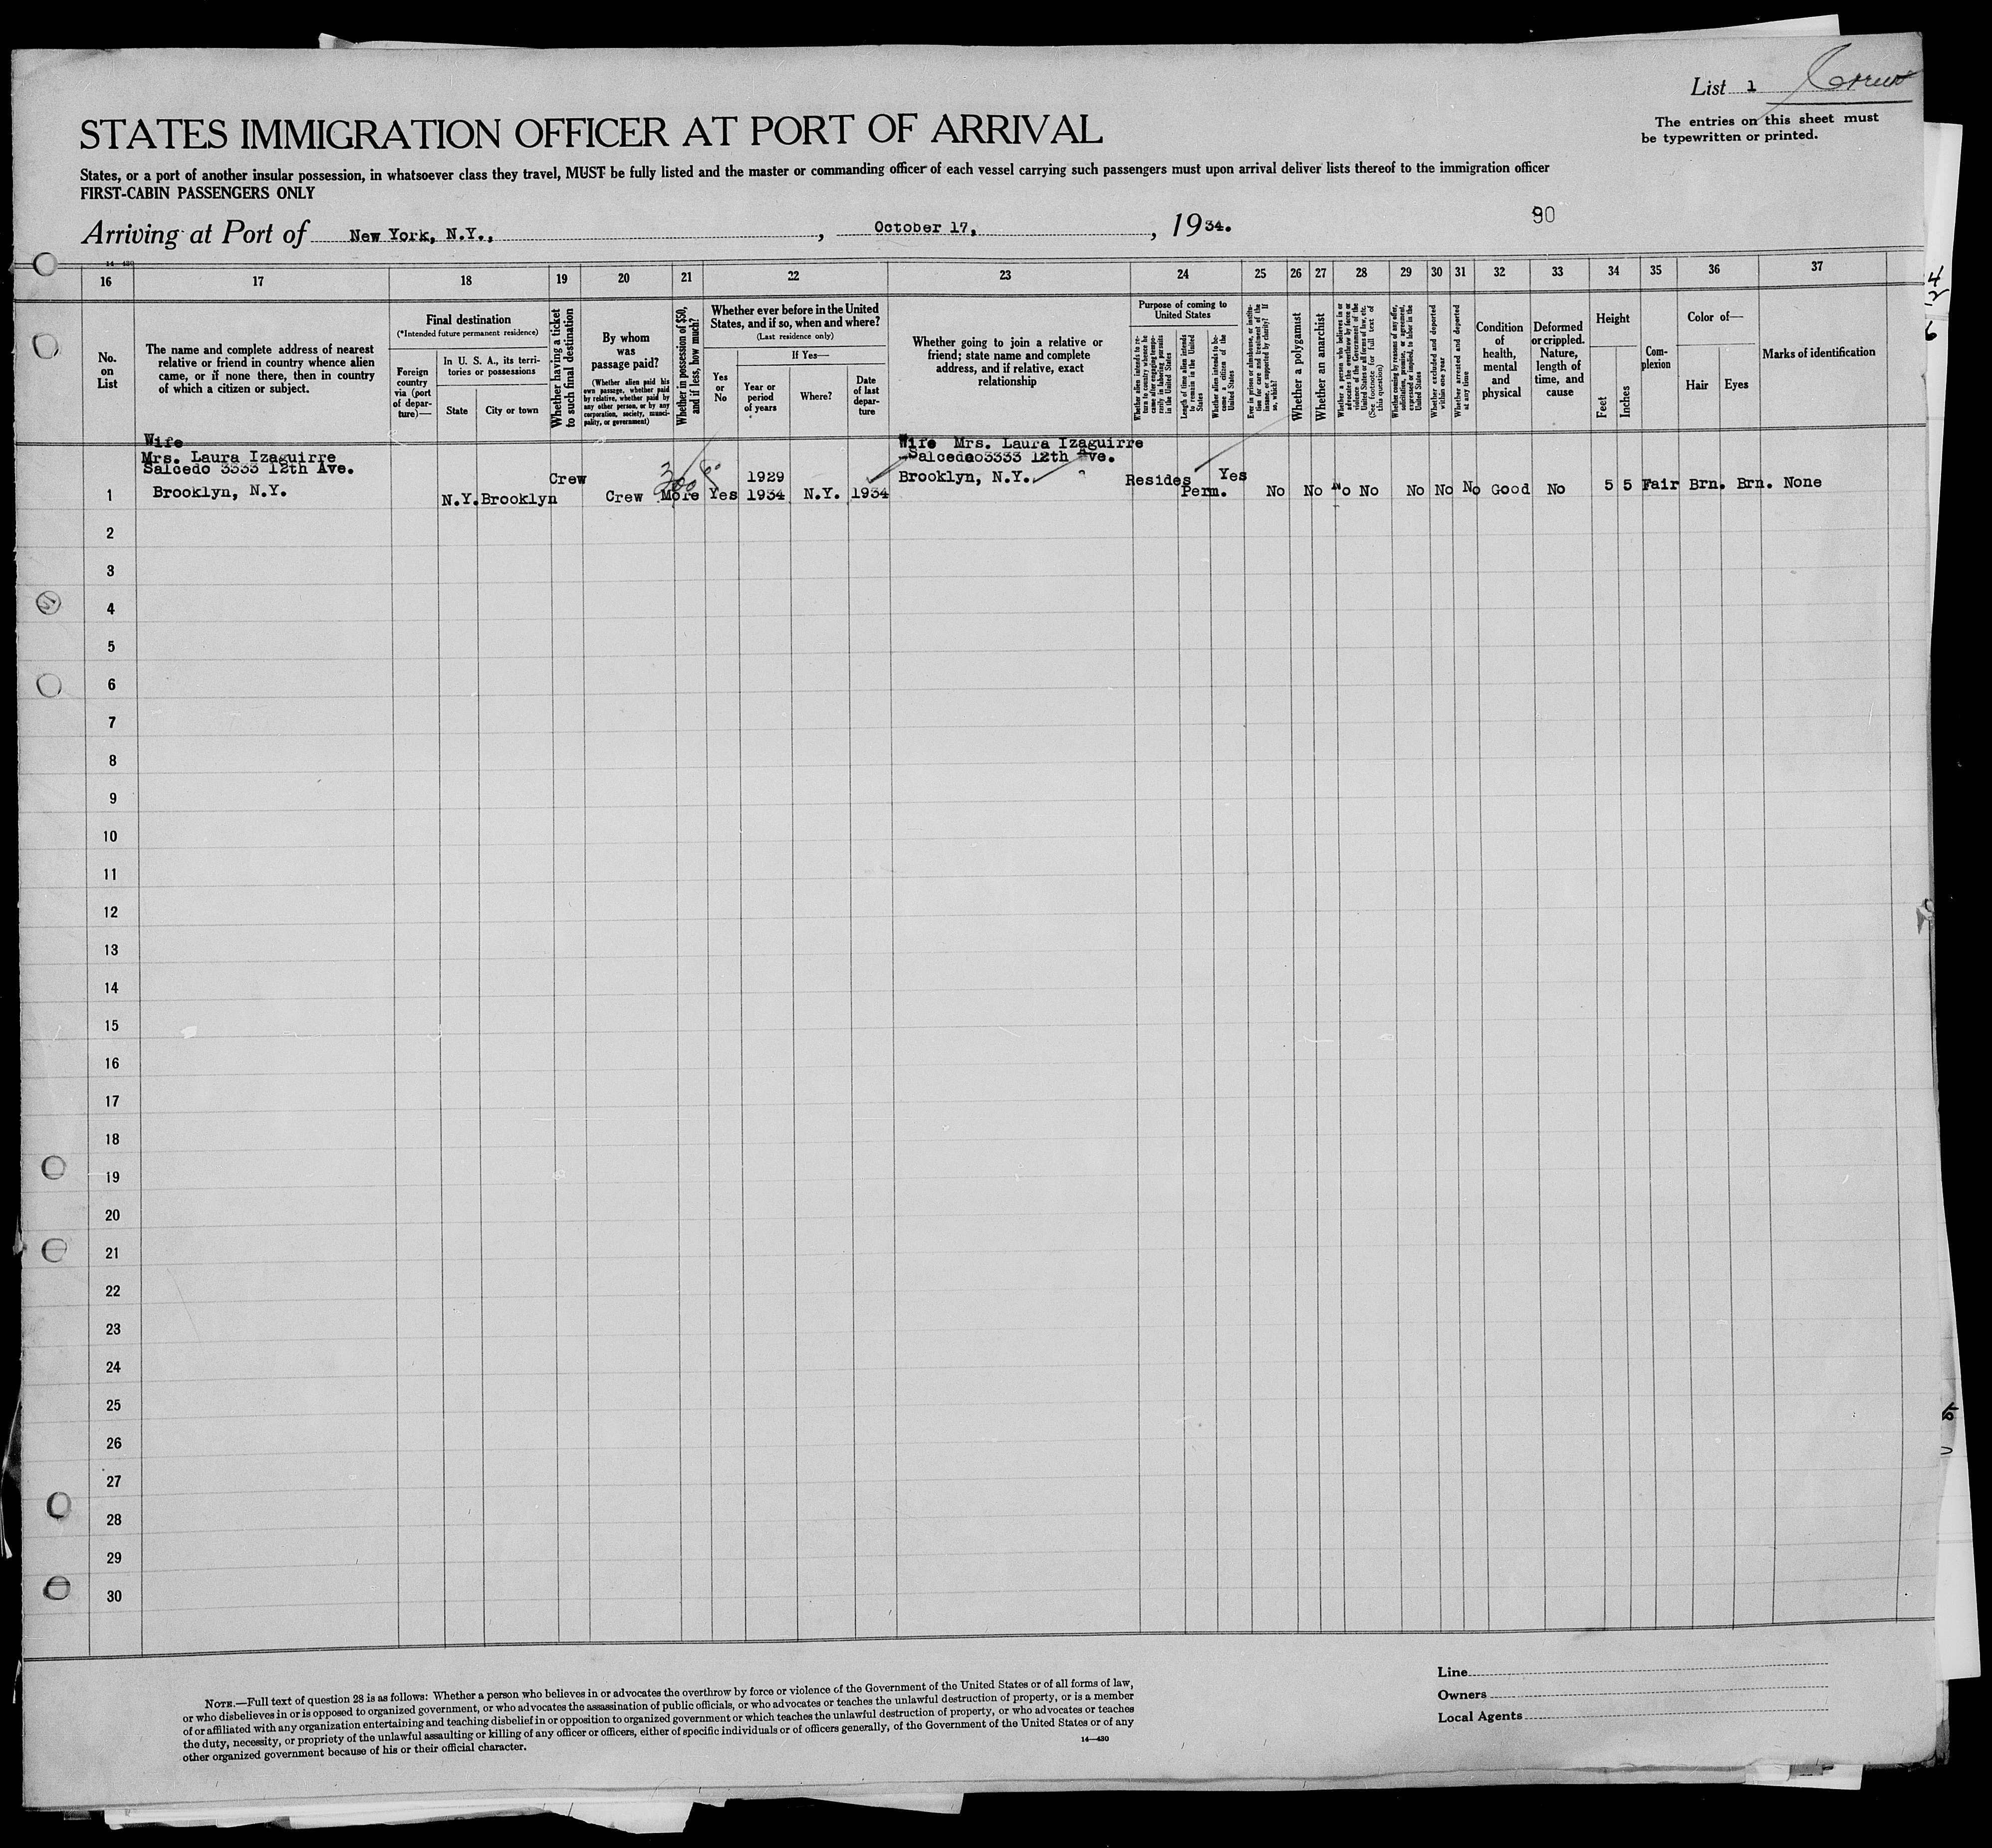 List 1 Crew
The entries on this sheet must
be typewritten or printed.
STATES IMMIGRATION OFFICER AT PORT OF ARRIVAL
States, or a port of another insular possession, in whatsoever class they travel, MUST be fully listed and the master or commanding officer of each vessel carrying such passengers must upon arrival deliver lists thereof to the immigration officer
FIRST-CABIN PASSENGERS ONLY
90
Arriving at Port of New York, N.Y., , October 17, , 1934.
14—430
16 17 18 19 20 21 22 23 24 25 26 27 28 29 30 31 32 33 34 35 36 37
No.
on
List
The name and complete address of nearest
relative or friend in country whence alien
came, or if none there, then in country
of which a citizen or subject.
Final destination
(*Intended future permanent residence)
Foreign
country
via (port
of depar-
ture)—
In U. S. A., its terri-
tories or possessions
State
City or town
Whether having a ticket
to such final destination
By whom
was
passage paid?
(Whether alien paid his
own passage, whether paid
by relative, whether paid by
any other person, or by any
corporation, society, munici-
pality, or government)
Whether in possession of $50,
and if less, how much?
Whether ever before in the United
States, and if so, when and where?
(Last residence only)
Yes
or
No
If Yes—
Year or
period
of years
Where?
Date
of last
depar-
ture
Whether going to join a relative or
friend; state name and complete
address, and if relative, exact
relationship
Purpose of coming to
United States
Whether alien intends to re-
turn to country whence he
came after engaging tempo-
rarily in laboring pursuits
in the United States
Length of time alien intends
to remain in the United
States
Whether alien intends to be-
come a citizen of the
United States
Ever in prison or almshouse, or institu-
tion for care and treatment of the
insane, or supported by charity? If
so, which?
Whether a polygamist
Whether an anarchist
Whether a person who believes in or
advocates the overthrow by force or
violence of the Government of the
United States or all forms of law, etc.
(See footnote for full text of
this question)
Whether coming by reasons of any offer,
solicitation, promise, or agreement,
expressed or implied, to labor in the
United States
Whether excluded and deported
within one year
Whether arrested and deported
at any time
Condition
of
health,
mental
and
physical
Deformed
or crippled.
Nature,
length of
time, and
cause
Height
Feet
Inches
Com-
plexion
Color of—
Hair
Eyes
Marks of identification
Wife
Mrs. Laura Izaguirre
Salcedo 3333 12th Ave.
Brooklyn, N.Y.
1 N.Y. Brooklyn Crew Crew More 300 Yes 1929
1934 N.Y. 1934
Wife Mrs. Laura Izaguirre
Salcedo3333 12th Ave.
Brooklyn, N.Y.
Resides Perm. Yes No No No No No No No Good No 5 5 Fair Brn. Brn. None
2
3
4
5
6
7
8
9
10
11
12
13
14
15
16
17
18
19
20
21
22
23
24
25
26
27
28
29
30
NOTE.—Full text of question 28 is as follows: Whether a person who believes in or advocates the overthrow by force or violence of the Government of the United States or of all forms of law,
or who disbelieves in or is opposed to organized government, or who advocates the assassination of public officials, or who advocates or teaches the unlawful destruction of property, or is a member
of or affiliated with any organization entertaining and teaching disbelief in or opposition to organized government or which teaches the unlawful destruction of property, or who advocates or teaches
the duty, necessity, or propriety of the unlawful assaulting or killing of any officer or officers, either of specific individuals or of officers generally, of the Government of the United States or of any
other organized government because of his or their official character.
14—430
Line
Owners
Local Agents